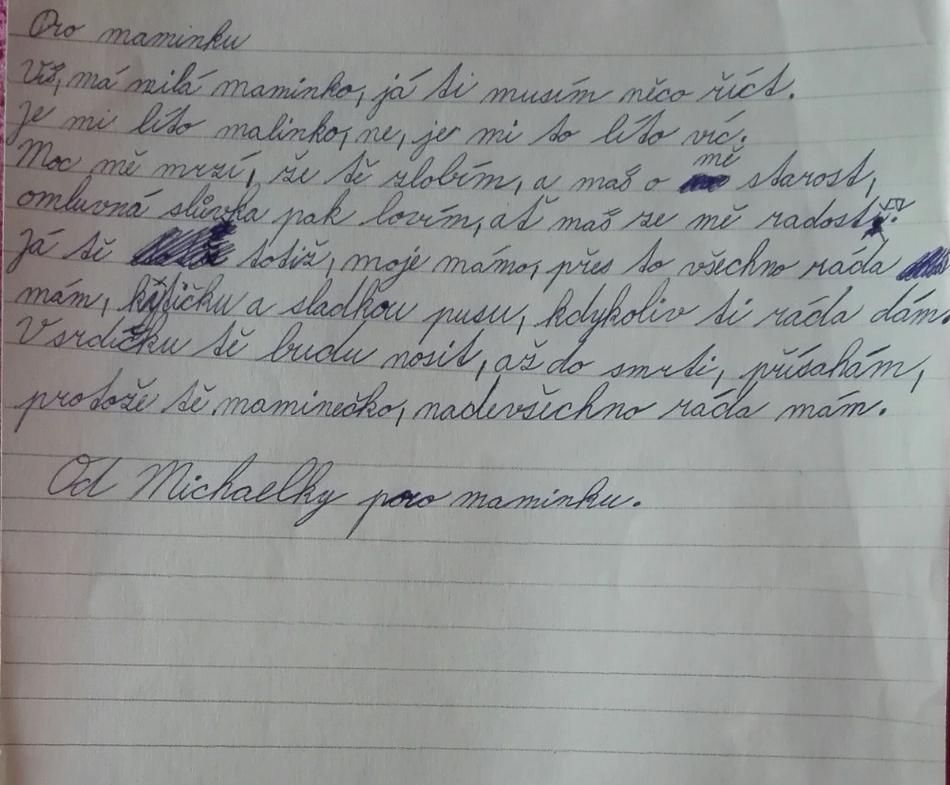 Pro maminku
Víš, má milá maminko, já ti musím něco říct.
Je mi líto malinko, ne, je mi to líto víc.
Moc mě mrzí, že tě zlobím, a máš o mě starost,
omluvná slůvka pak lovím, ať máš ze mě radost.
Já tě totiž, moje mámo, přes to všechno ráda
mám, kytičku a sladkou pusu, kdykoliv ti ráda dám.
V srdíčku tě budu nosit, až do smrti, přísahám,
protože tě maminečko, nadevšechno ráda mám.
Od Michaelky pro maminku.